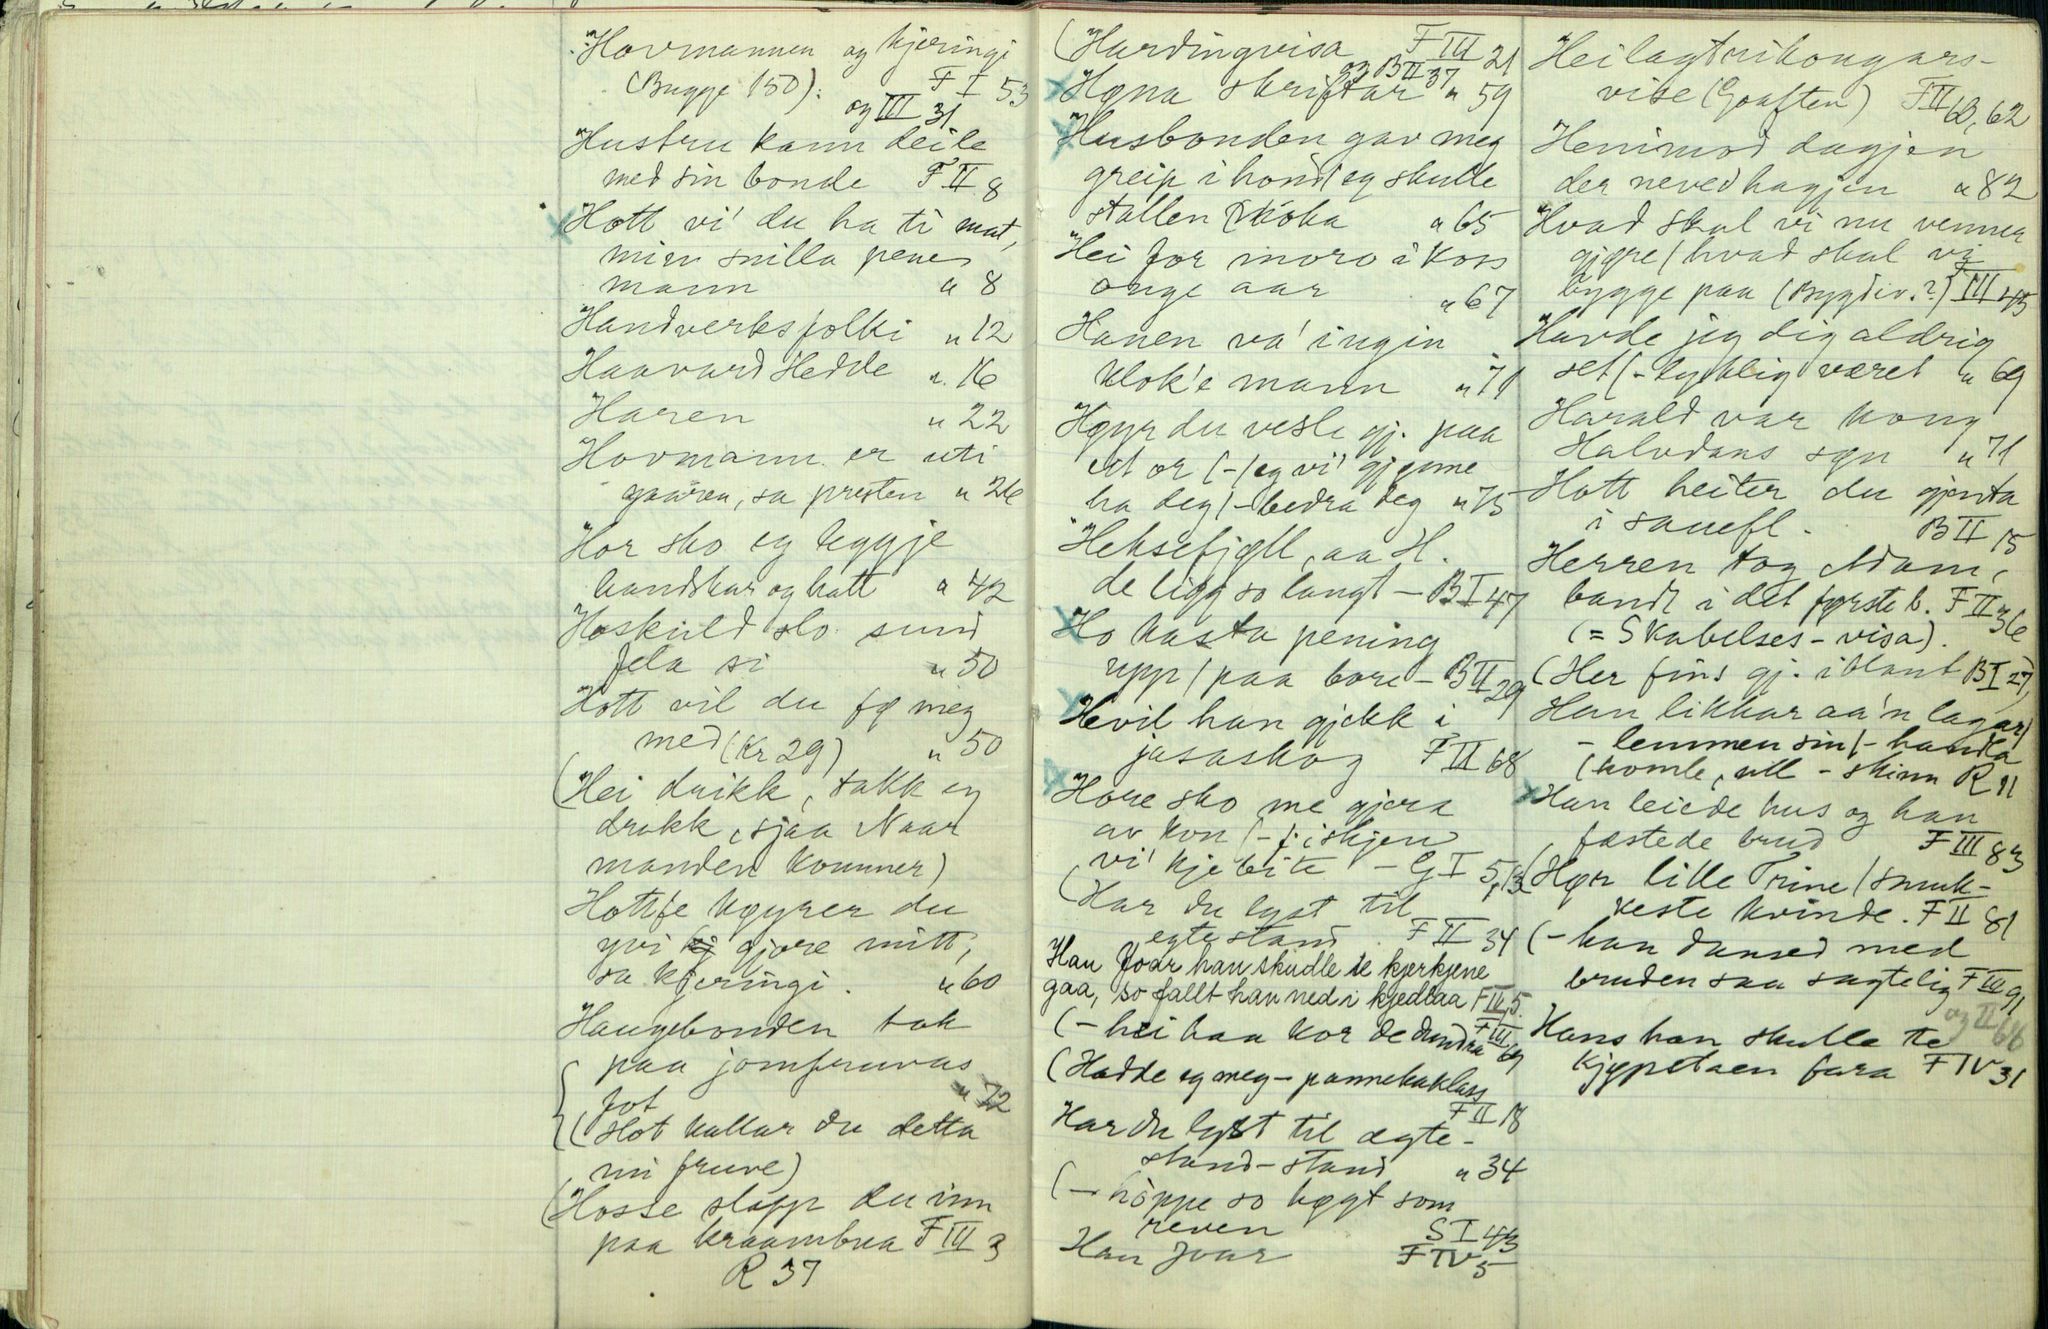 Hovmannen og kjeringi
(Bugge 150): F I 53
og III 31
Hustru kann deile
med sin bonde F II 8
Hott vi' du ha ti mat,
min snilla pene
mann " 8
Handverksfolki " 12
Haavard Hedde " 16
Haren " 22
Hovmann er uti
gaaren, sa presten " 26
Hor sko eg leggje
handskar og hatt " 42
Hoskuld slo sund
fela si " 50
Hott vil du fø meg
med (Kr 29) " 50
(Hei drikk, takk eg
drakk, sjaa Naar
manden kommer)
Hottfe køyrer du
yvi gjore mitt,
sa kjeringi. " 60
Haugebonden tok
paa jomfruvas
fot " 72
(Hot kallar du detta
mi fruve)
(Hosse slapp du inn
paa kraambua F III 3
R 37
(Hardingvisa F III 21
og B II 37
Høna skriftar " 59
Husbonden gav meg
greip i hond eg skulle
stallen moka " 65
Hei for moro i Kors
onge aar " 67
Hanen va' ingin
klok'e mann " 71
Høyr du vesle gj. paa
eit or (-/eg vi' gjønne
ha deg/-bedra deg " 75
Heksefjell, aa H.
de ligg so langt – B I 47
Ho kasta pening
upp / paa bore – B II 29
Hevil han gjekk i
jasaskog F II 68
Hore sko me gjera
av kon (-/: iskjen
vi' kje bite – G I 5,13
(Har du lyst til
egtestand F II 34
Han Joar han skudle te kjerkjene
gaa, so fallt han ned i kjedlaa F III 5.
(– hei haa kor de dundra F III 69
(Hadde eg meg – pannekaklass
F II 18
Har du lyst til ægte-
stand-stand " 34
(– hoppe so høgt som
reven S I 43
Han Ivar F IV 5
Heilagtrikongars-
vise (Goaften) F II 60, 62
Henimod dagjen
der neved hagjen " 82
Hvad skal vi nu venner
gjøre / hvad skal vi
bygge paa (Bygdev.?) F III 45
Havde jeg dig aldrig
set (– lykklig været " 69
Harald var kong
Halvdans søn " 71
Hott heiter du gjenta
i sauefl. B II 15
Herren tog Adam,
bandt i det første b. F II 36
(= Skabelses-visa).
(Her fins gj. iblant B I 27,
Han likkar aa'n lagar/
– lemmen sin/– handla
(komle, ull – skinn R 11
Han leiede hus og han
fæstede brud F III 83
(Hør lille Trine / smuk-
keste kvinde. F II 81
(– han danset med
bruden saa sagtelig F III 91
og II 66
Hans han skulle te
kjøpstaen fara F IV 31